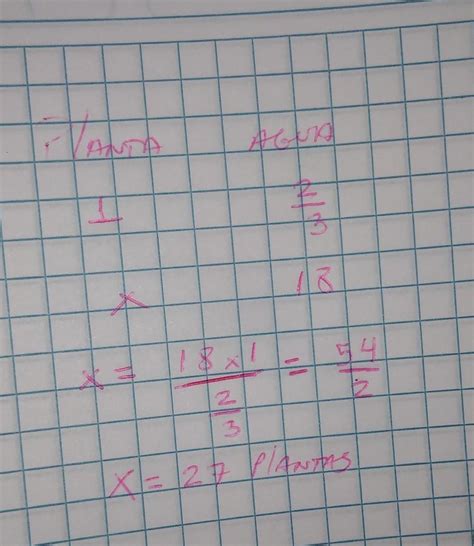 Planta Agua
1 2/3
x 18
x = 18 x 1 / 2/3 = 54/2
x = 27 Plantas